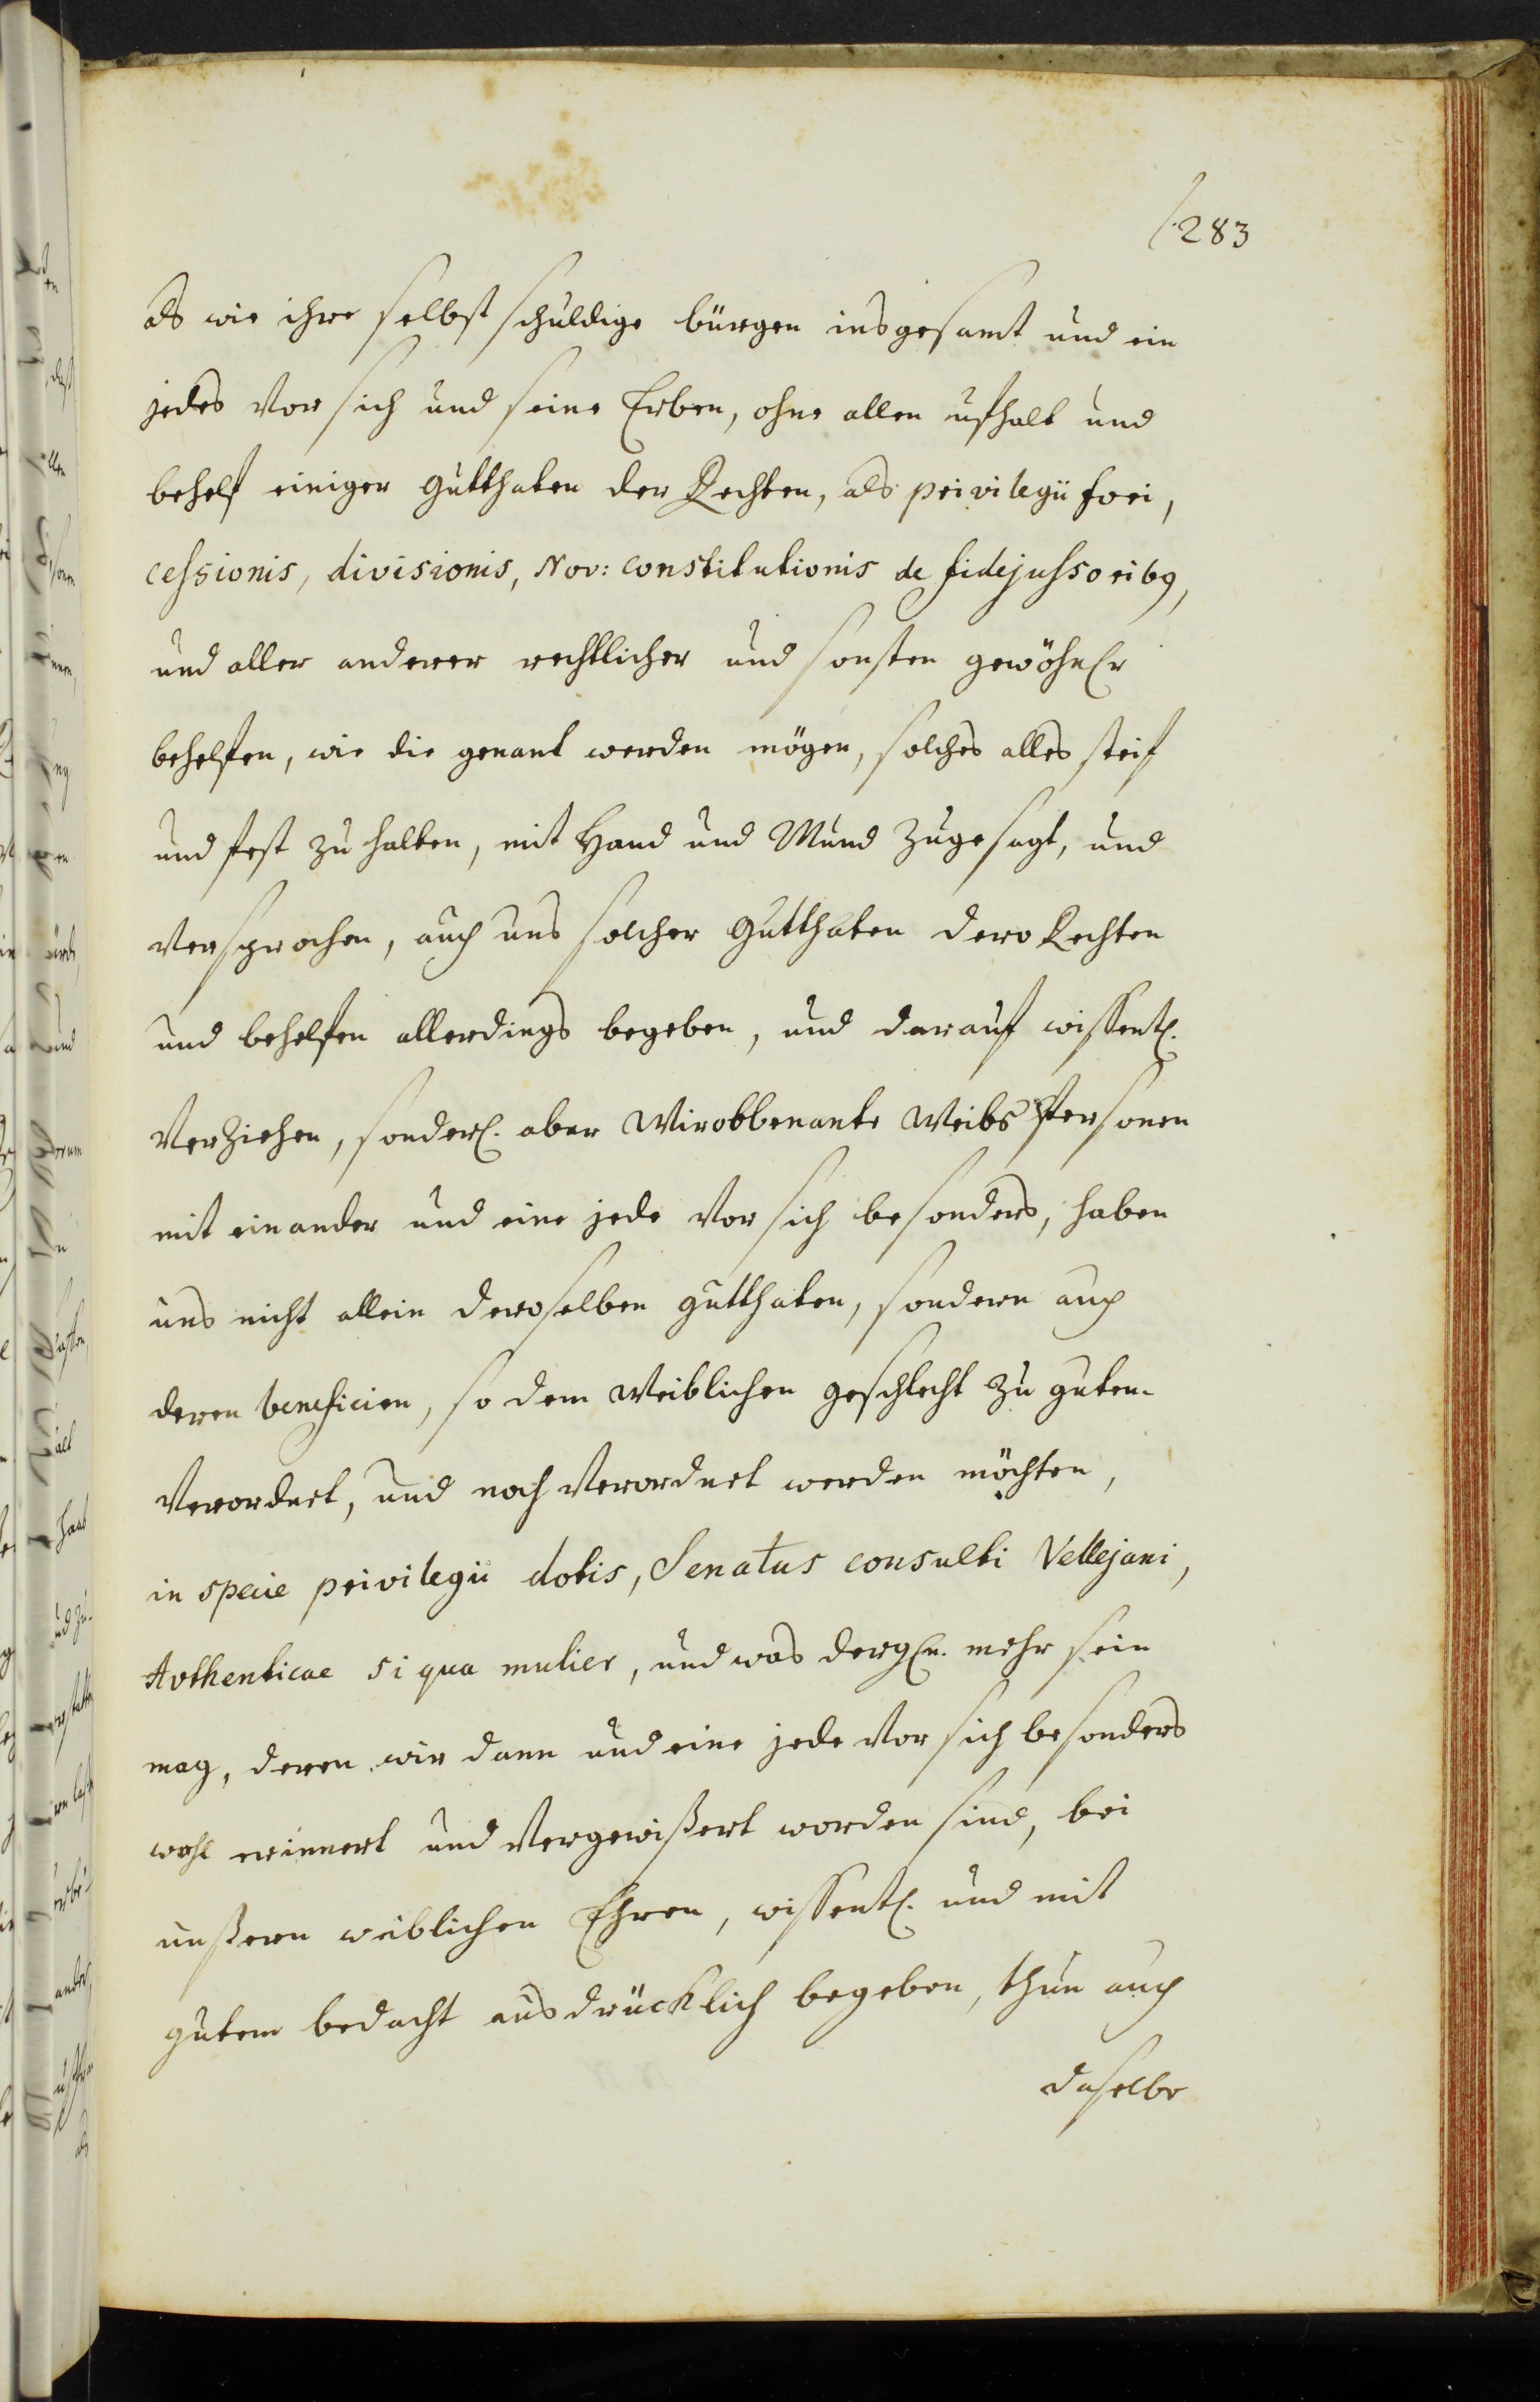 283
als wie ihre selbst schuldige bürgen insgesamt und ein
jedes vor sich und seine Erben, ohne allen ufhalt und
behelf einiger Gutthaten der Rechten, als privilegii fori,
cessionis, divisionis, Nov: constitutionis de fidejussorib9,
und aller anderer rechtlicher und sonsten gewöhnlr
behelffen, wie die genant werden mögen, solches alles steif
und fest zu halten, mit Hand und Mund zugesagt, und
versprochen, auch uns solcher Gutthaten dero Rechten
und behelffen allerdings begeben, und darauf wissentl.
verziehen, sonderl. aber Wir obbenante Weibs Personen
mit einander und eine jede vor sich besonders, haben
uns nicht allein deroselben gutthaten, sondern auch
deren beneficien, so dem Weiblichen geschlecht zu guten
verordnet, und noch verordnet werden möchten,
in specie privilegii dotis, Senatus consulti Vellejani,
Avthenticae si qua mulier, und was dergln. mehr sein
mag, deren wir dann und eine jede vor sich besonders
wohl erinnert und vergewißert worden sind, bei
unßeren weiblichen Ehren, wissentl. und mit
gutem bedacht ausdrücklich begeben, thun auch
daselbe